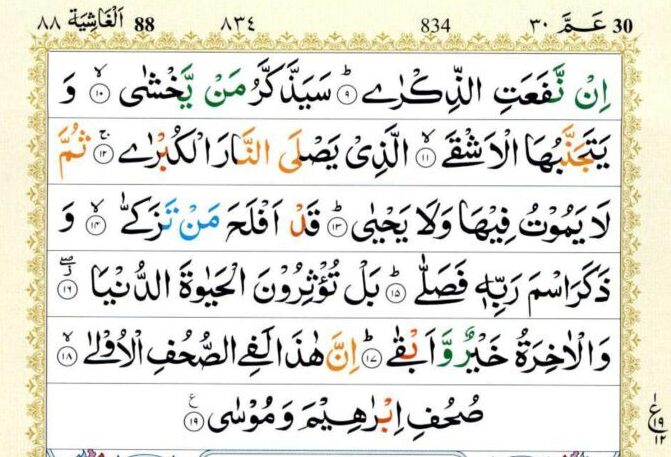 عَمَّ ٣٠ 30 834 ٨٣٤ اَلْغَاشِيَة 88 ٨٨
اِنْ نَّفَعَتِ الذِّكْرٰى ؕ‏ ٩ سَيَذَّكَّرُ مَنْ يَّخْشٰى ۙ‏ ١٠ وَ
يَتَجَنَّبُهَا الْاَشْقَى ۙ‏ ١١ الَّذِىْ يَصْلَى النَّارَ الْكُبْرٰى ۚ‏ ١٢ ثُمَّ
لَا يَمُوْتُ فِيْهَا وَلَا يَحْيٰى ؕ‏ ١٣ قَدْ اَفْلَحَ مَنْ تَزَكّٰى ۙ‏ ١٤ وَ
ذَكَرَ اسْمَ رَبِّهٖ فَصَلّٰى ؕ‏ ١٥ بَلْ تُؤْثِرُوْنَ الْحَيٰوةَ الدُّنْيَا ۖ ١٦
وَالْاٰخِرَةُ خَيْرٌ وَّاَبْقٰى ؕ‏ ١٧ اِنَّ هٰذَا لَفِى الصُّحُفِ الْاُوْلٰى ۙ‏ ١٨
صُحُفِ اِبْرٰهِيْمَ وَمُوْسٰى ١٩
ع
١٩
١٢